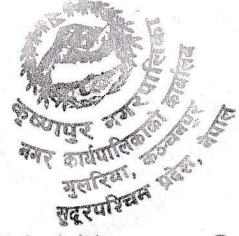 कृष्णपुर नगरपालिका
नगर कार्यपालिकाको कार्यालय
गुलरिया, कञ्चनपुर
सुदूरपश्चिम प्रदेश, नेपाल